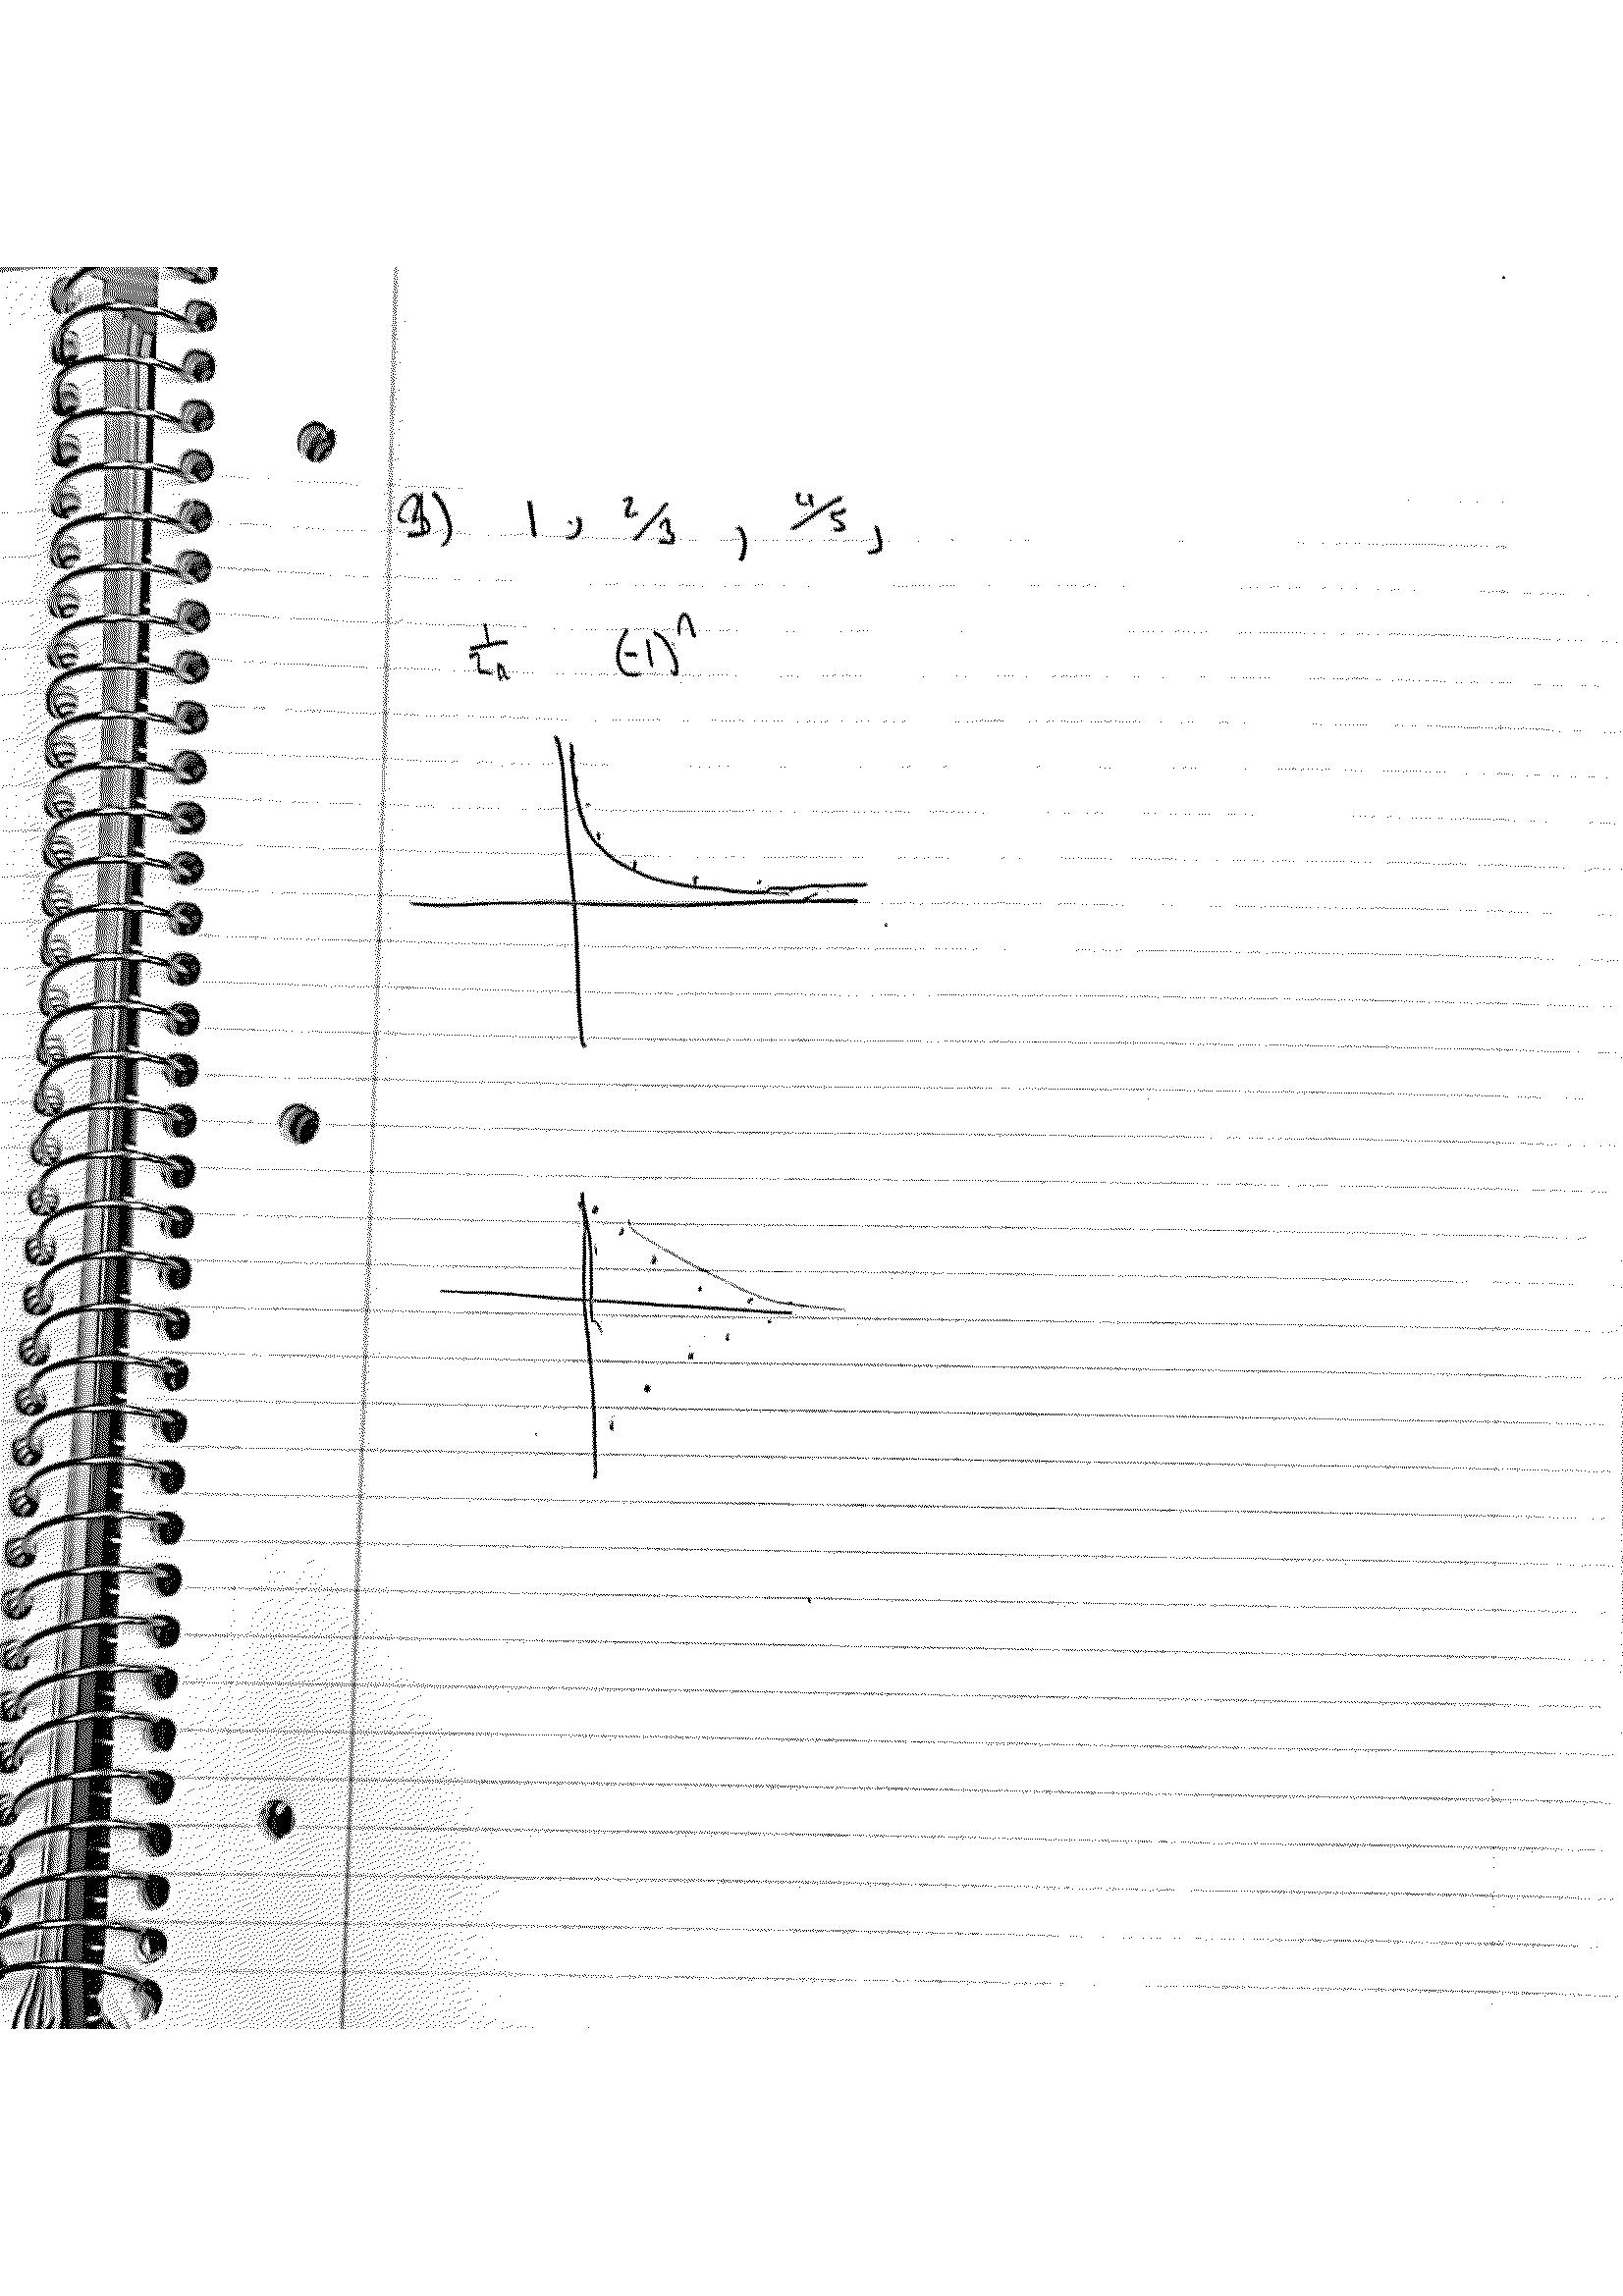 1, 2/3, 4/5,
1/2n (-1)^n